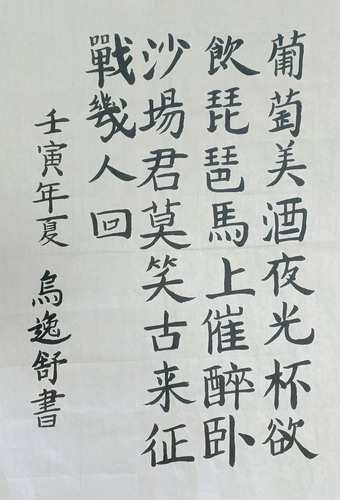 葡萄美酒夜光杯欲
飲琵琶馬上催醉卧
沙場君莫笑古来征
戰幾人回
壬寅年夏 烏逸舒書